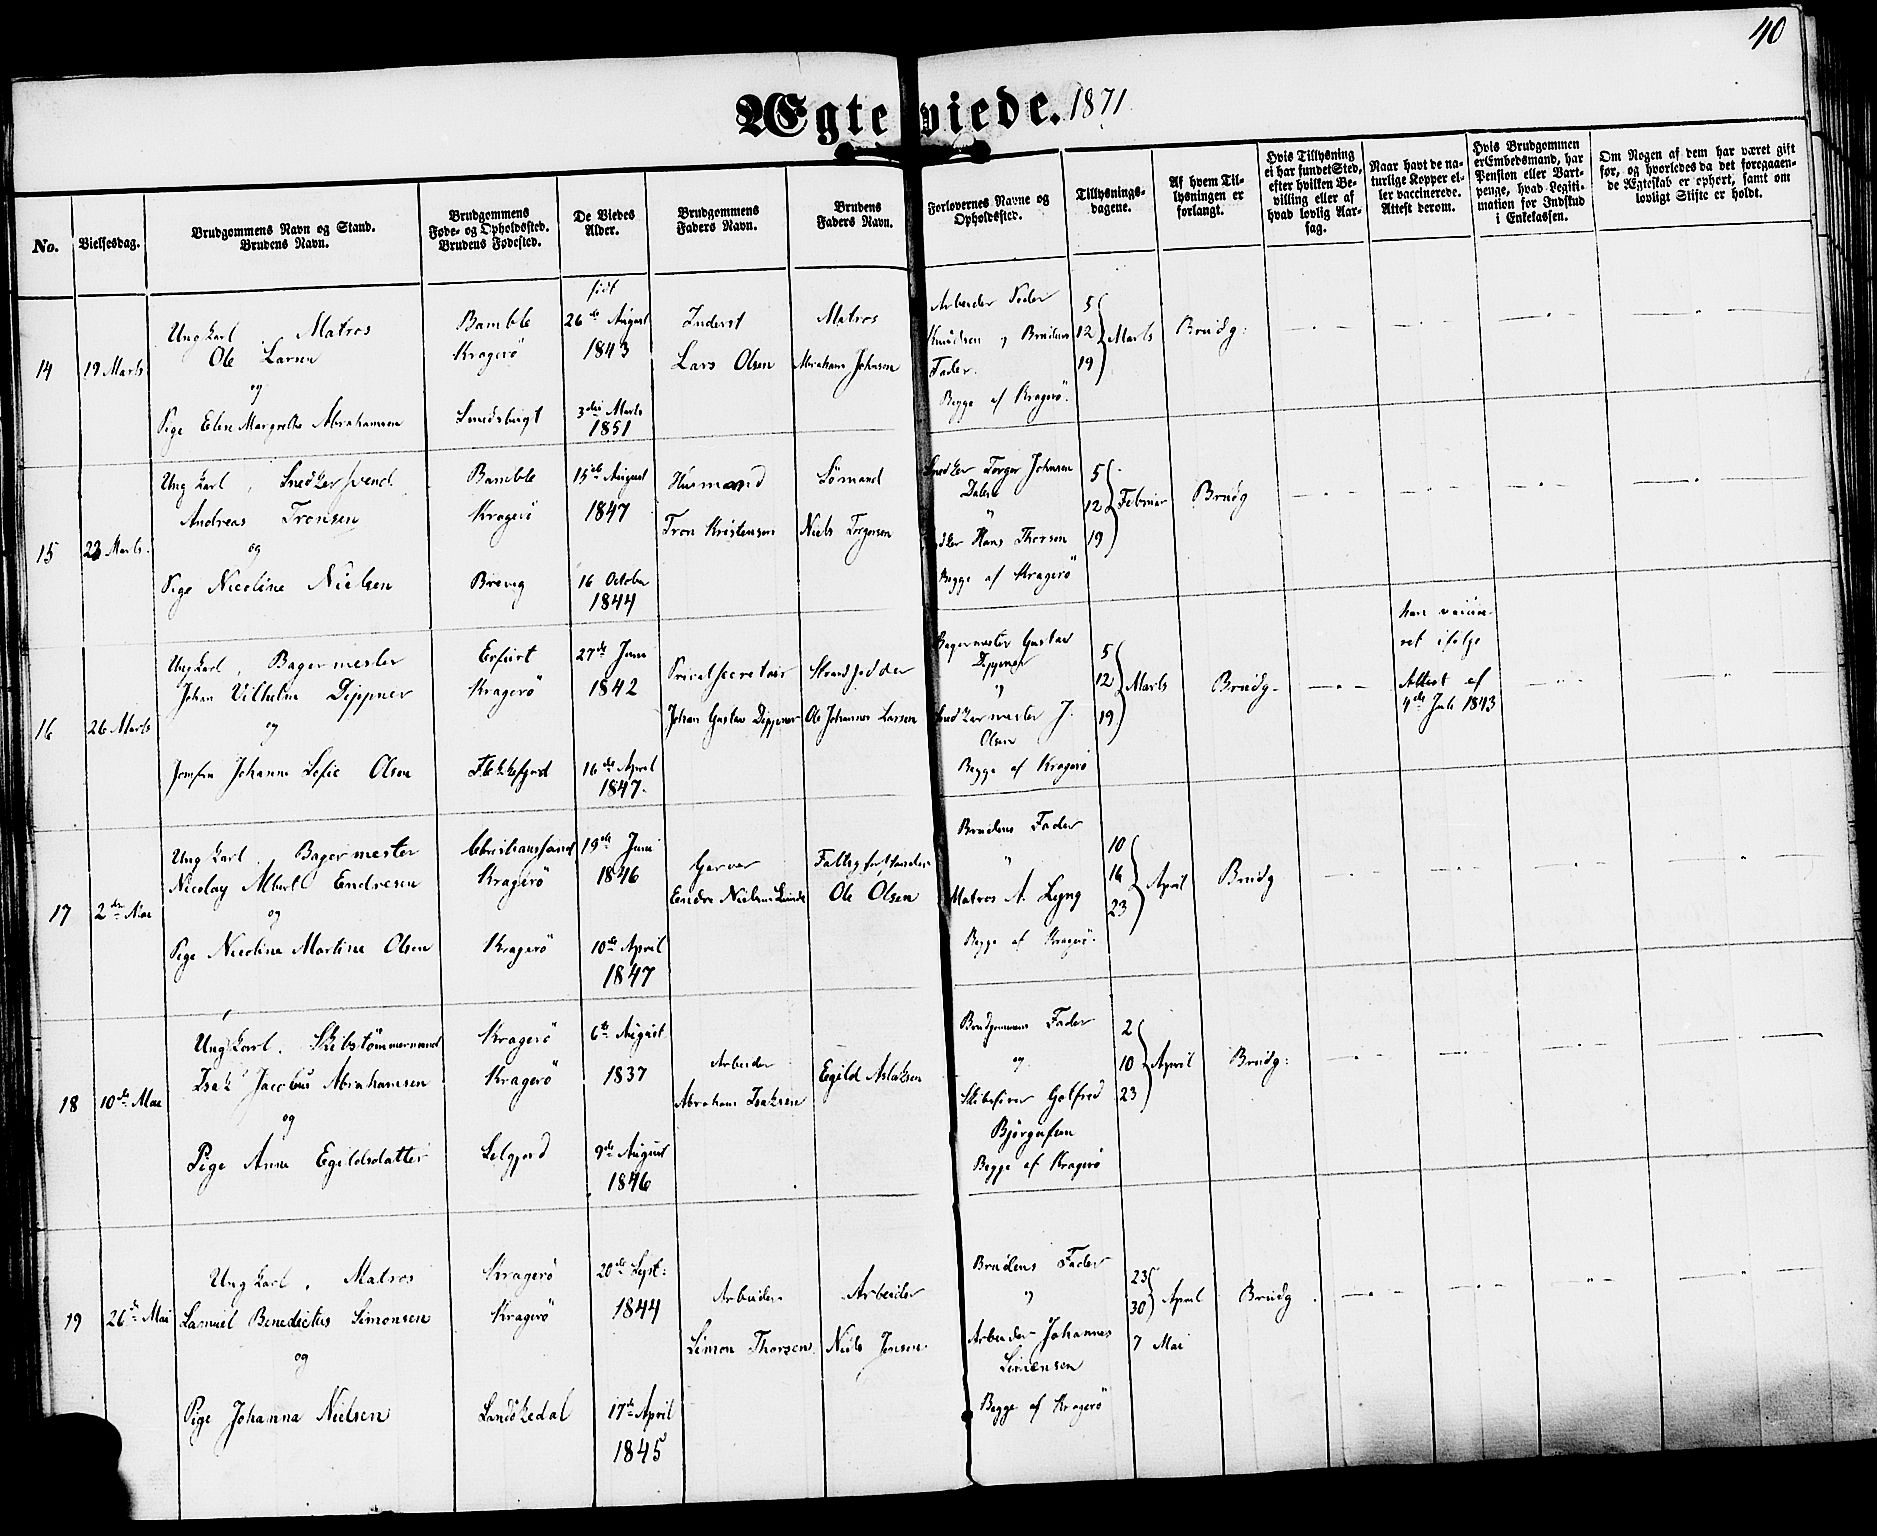 40
Ægteviede. 1871
No.
Vielsesdag.
Brudgommens Navn og Stand.
Brudens Navn.
Brudgommens
Føde- og Opholdssted.
Brudens Fødested.
De Viedes
Alder.
Brudgommens
Faders Navn.
Brudens
Faders Navn.
Forlovernes Navne og
Opholdssted.
Tillysnings-
dagene.
Af hvem Til-
lysningen er
forlangt.
Hvis Tillysning
ei har fundet Sted,
efter hvilken Be-
villing eller af
hvad lovlig Aar-
sag.
Naar havt de na-
turlige Kopper el-
ler vaccinerede.
Attest derom.
Hvis Brudgommen
er Embedsmand, har
Pension eller Vart-
penge, hvad Legiti-
mation for Indskud
i Enkekassen.
Om Nogen af dem har været gift
før, og hvorledes da det foregaaen-
de Ægteskab er ophørt, samt om
lovligt Skifte er holdt.
14
19 Marts
Ungkarl, Matros
Ole Larsen
og
Pige Elen Margrethe Abrahamsen
Bamble
Kragerö
Smedsbugt
født
26de August
1843
3die Marts
1851
Inderst
Lars Olsen
Matros
Abraham Johnsen
Arbeider Peder
Knudsen og Brudens
Fader.
Begge af Kragerö.
5
12 Marts
19
Brudg:
15
23 Marts.
Ungkarl, Snedkersvend.
Andreas Tronsen
og
Pige Nicoline Nielsen
Bamble
Kragerö
Brevig
15de August
1847
16 October
1844
Husmand
Tron Kristensen
Sömand
Niels Torgersen
Snedker Torger Johnsen
Dalen
"
Hans Thorsen
Begge af Kragerö
5
12 Februar
19
Brudg
16
26 Marts
Ungkarl, Bagermester
Johan Vilhelm Dippner
og
Jomfru Johanne Sofie Olsen
Erfurt
Kragerö
Flekkefjord
27de Juni
1842
16de April
1847.
Privatsecretair
Johan Gustav Dippner
Ole Johannes Larsen
Bagermester Gustav
Dippner
og
Snedkermester J.
Olsen
Begge af Kragerö
5
12 Marts
19
Brudg.
ret ifølge
Attest af
4de Juli 1843
17
2den Mai
Ungkarl. Bagermester
Nicolay Albert Endresen
og
Pige Nicoline Martine Olsen
Christianssand
Kragerö
Kragerö
19de Juni
1846
10de April
1847
Garver
Endre Nielsen Lunde
Fattigforstander
Ole Olsen
Brudens Fader
"
Matros A. Lyng
Begge af Kragerö.
10
16 April
23
Brudg
18
10de Mai
Ungkarl. Skibstömmermand
Isak Jacobus Abrahamsen
og
Pige Anne Egildsdatter
Kragerö
Kragerö
Selgjord
6te August
1837
9de August
1846
Arbeider
Abraham Isaksen
Egild Aslaksen
Brudgommens Fader
og
Skibsfører Gotfred
Björgufsen
Begge af Kragerö
2
10 April
23
Brudg:
19
26de Mai
Ungkarl, Matros
Samuel Benedictus Simonsen
og
Pige Johanna Nielsen
Kragerö
Kragerö
Sandökedal
20de Sept:
1844
17de April
1845
Arbeider
Simon Thorsen.
Arbeider
Niels Jensen.
Brudens Fader
og
Arbeider Johannes
Simensen
Begge af Kragerö
23
30 April
7 Mai
Brudg.